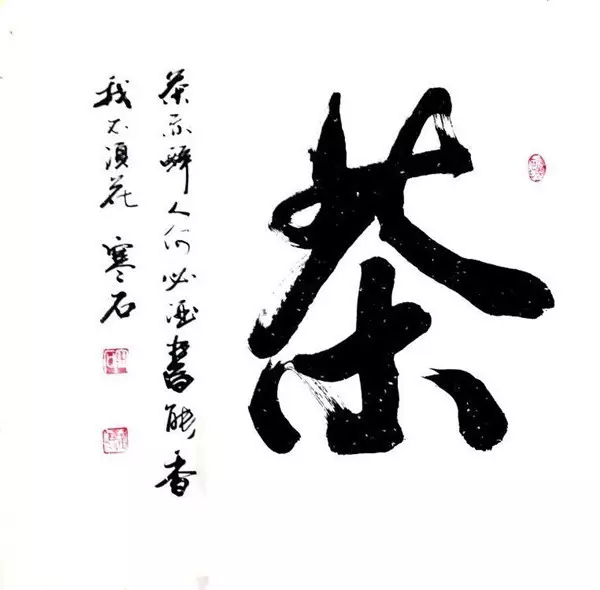 茶
茶亦醉人何必酒書能香
我不須花 寒石